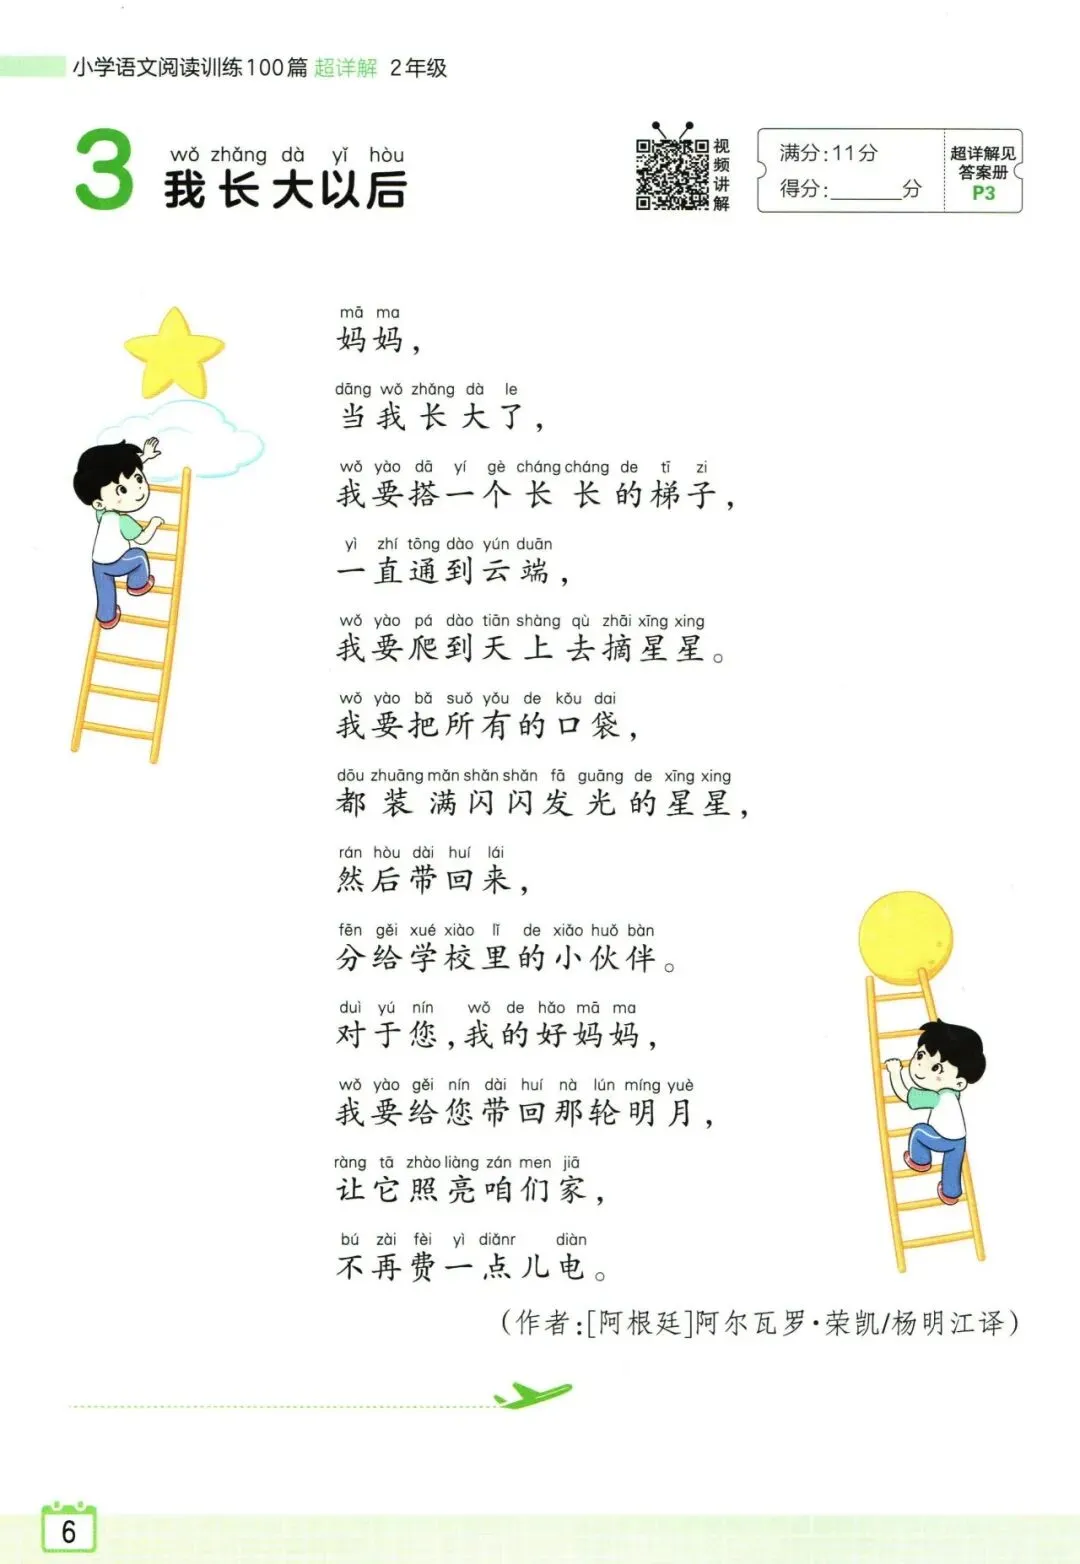 小学语文阅读训练100篇 超详解 2年级
3
wǒ zhǎng dà yǐ hòu
我长大以后
视频讲解
满分:11分
得分:______分
超详解见
答案册
P3
mā ma
妈妈,
dāng wǒ zhǎng dà le
当我长大了,
wǒ yào dā yí gè cháng cháng de tī zi
我要搭一个长长的梯子,
yì zhí tōng dào yún duān
一直通到云端,
wǒ yào pá dào tiān shàng qù zhāi xīng xing
我要爬到天上去摘星星。
wǒ yào bǎ suǒ yǒu de kǒu dai
我要把所有的口袋,
dōu zhuāng mǎn shǎn shǎn fā guāng de xīng xing
都装满闪闪发光的星星,
rán hòu dài huí lái
然后带回来,
fēn gěi xué xiào lǐ de xiǎo huǒ bàn
分给学校里的小伙伴。
duì yú nín wǒ de hǎo mā ma
对于您,我的好妈妈,
wǒ yào gěi nín dài huí nà lún míng yuè
我要给您带回那轮明月,
ràng tā zhào liàng zán men jiā
让它照亮咱们家,
bú zài fèi yì diǎnr diàn
不再费一点儿电。
(作者:[阿根廷]阿尔瓦罗·荣凯/杨明江译)
6